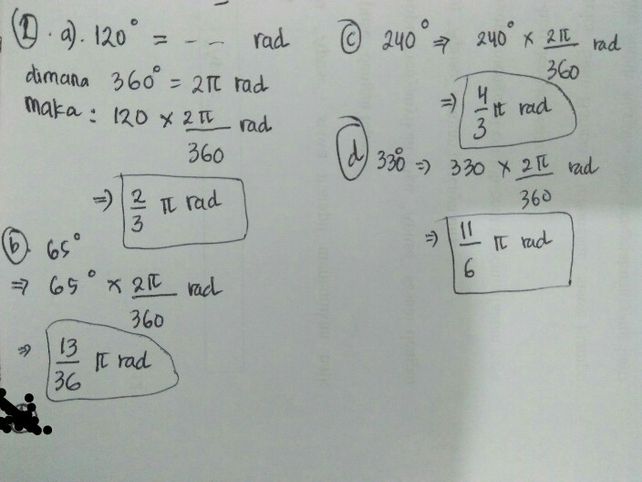 1. a). 120° = - - rad
dimana 360° = 2π rad
maka : 120 × 2π/360 rad
⇒ 2/3 π rad
b. 65°
⇒ 65° × 2π/360 rad
⇒ 13/36 π rad
c 240° ⇒ 240° × 2π/360 rad
⇒ 4/3 π rad
d 330° ⇒ 330 × 2π/360 rad
⇒ 11/6 π rad